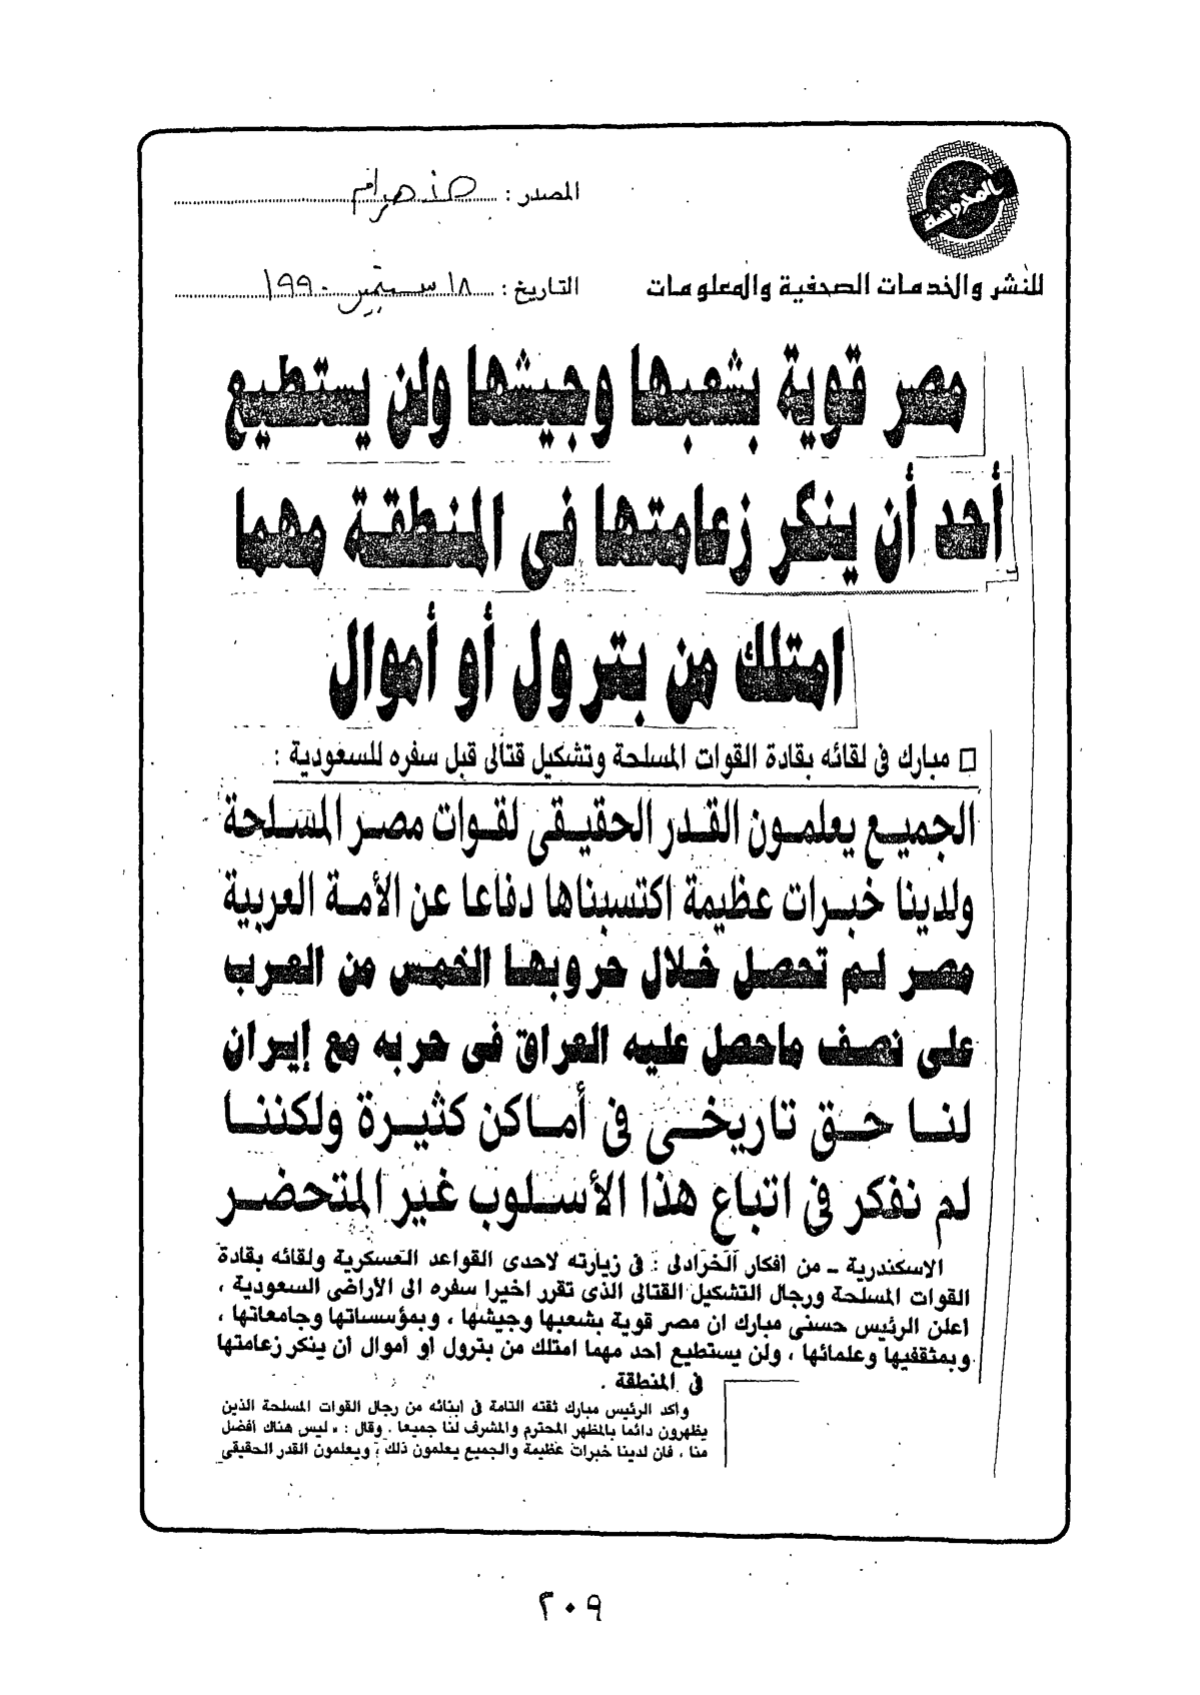 المحروسة
المصدر :
للنشر والخدمات الصحفية والمعلومات
التاريخ : ١٨ سبتمبر ١٩٩٠
مصر قوية بشعبها وجيشها ولن يستطيع
أحد أن ينكر زعامتها فى المنطقة مهما
امتلك من بترول أو أموال
□ مبارك فى لقائه بقادة القوات المسلحة وتشكيل قتالى قبل سفره للسعودية :
الجميع يعلمون القدر الحقيقى لقوات مصر المسلحة
ولدينا خبرات عظيمة اكتسبناها دفاعا عن الأمة العربية
مصر لم تحصل خلال حروبها الخمس من العرب
على نصف ماحصل عليه العراق فى حربه مع إيران
لنا حق تاريخى فى أماكن كثيرة ولكننا
لم نفكر فى اتباع هذا الأسلوب غير المتحضر
الاسكندرية ـ من افكار الخرادلى : فى زيارته لاحدى القواعد العسكرية ولقائه بقادة
القوات المسلحة ورجال التشكيل القتالى الذى تقرر اخيرا سفره الى الأراضى السعودية ،
اعلن الرئيس حسنى مبارك ان مصر قوية بشعبها وجيشها ، وبمؤسساتها وجامعاتها ،
وبمثقفيها وعلمائها ، ولن يستطيع احد مهما امتلك من بترول او أموال ان ينكر زعامتها
فى المنطقة .
وأكد الرئيس مبارك ثقته التامة فى ابنائه من رجال القوات المسلحة الذين
يظهرون دائما بالمظهر المحترم والمشرف لنا جميعا . وقال : « ليس هناك أفضل
منا ، فان لدينا خبرات عظيمة والجميع يعلمون ذلك ، ويعلمون القدر الحقيقى
٢٠٩